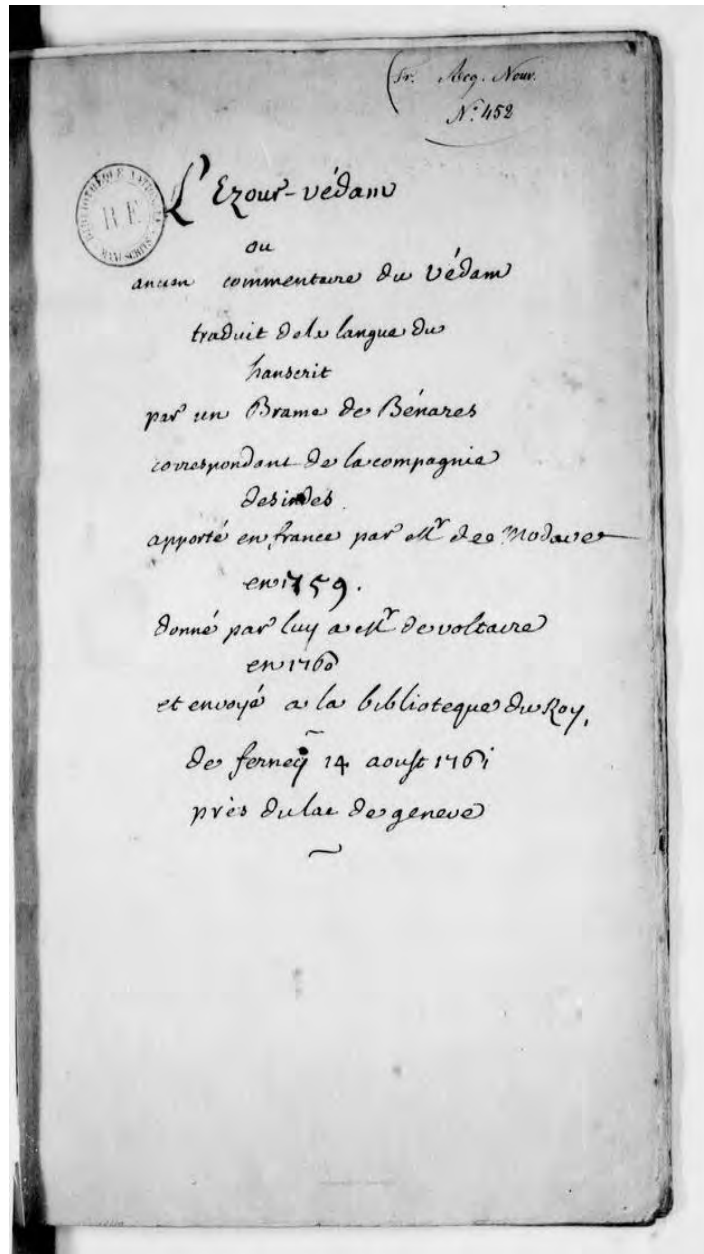 (Fr. Acq. Nouv.
N.º 452
BIBLIOTHÈQUE NATIONALE
R F
MANUSCRITS
L'Ezour-védam
ou
ancien commentaire du Védam
traduit dela langue du
hanscrit
par un Brame de Bénares
correspondant de la compagnie
desindes
apporté en france par Mr de Modave
en 1759.
donné par luy a Mr de voltaire
en 1760
et envoyé a la biblioteque du Roy,
de ferney 14 aoust 1761
près du lac de geneve